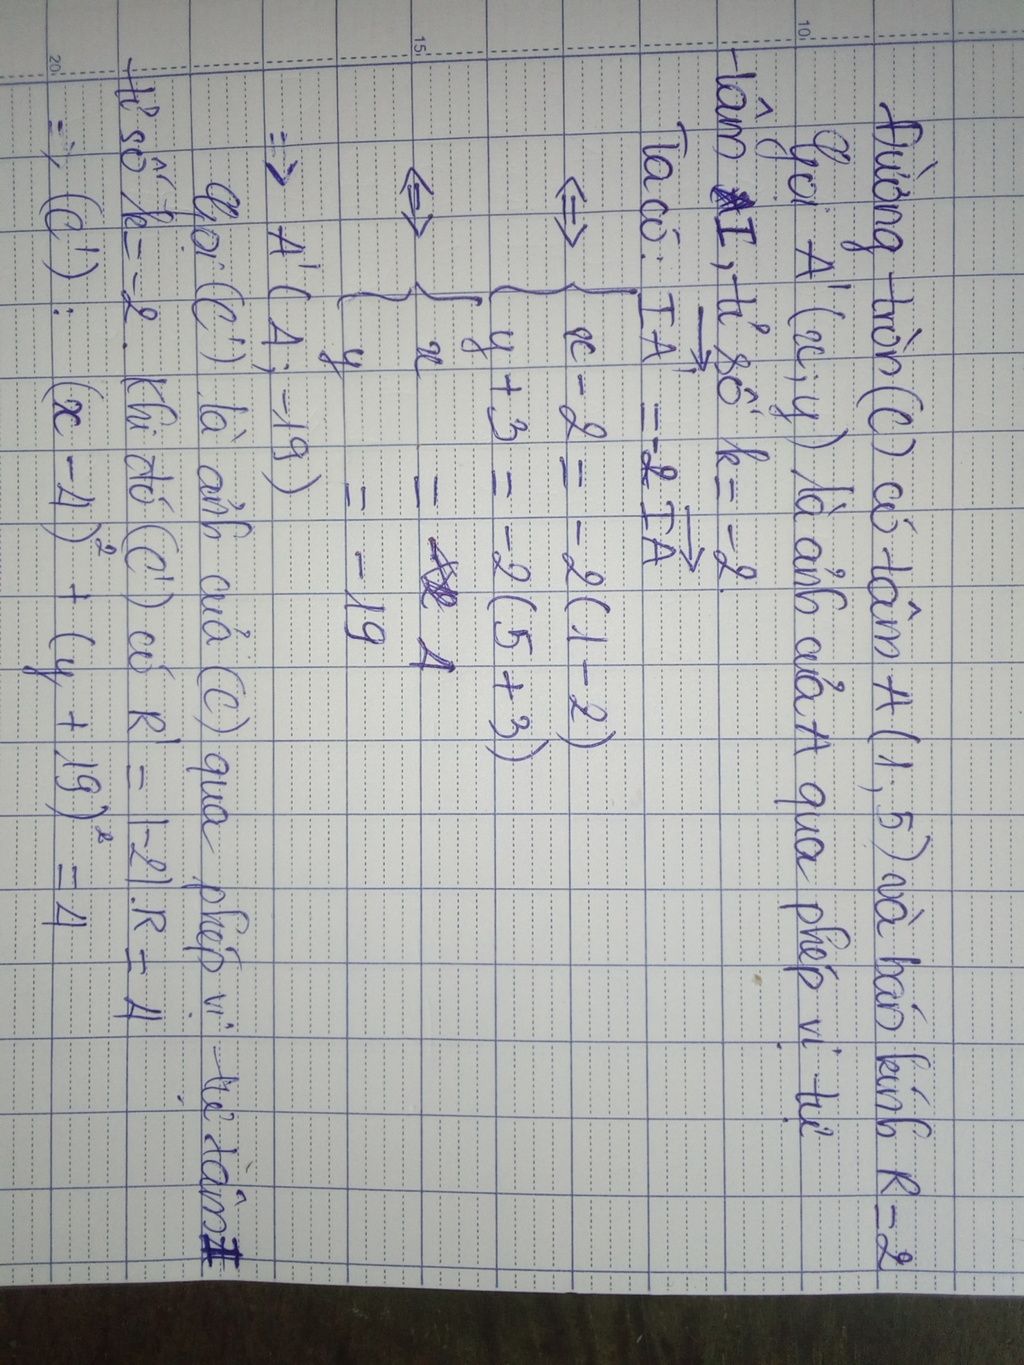 Đường tròn (C) có tâm A (1, 5) và bán kính R = 2
Gọi A' (x; y) là ảnh của A qua phép vị tự
tâm I, tỉ số k = -2.
Ta có: IA' = -2 IA
⇔ { x - 2 = -2 (1 - 2)
y + 3 = -2 (5 + 3)
⇔ { x = 4
y = -19
=> A' (4; -19)
Gọi (C') là ảnh của (C) qua phép vị tự tâm I
tỉ số k = -2. Khi đó (C') có R' = |-2|.R = 4
=> (C') : (x - 4)² + (y + 19)² = 4
10
15
20